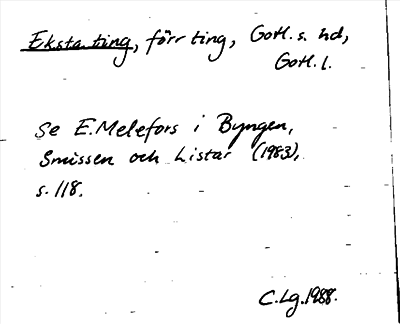 Eksta ting, förr ting, Gotl. s. hd,
Gotl. l.
Se E. Melefors i Byngen,
Smissen och Listar (1983),
s. 118.
C. Lg. 1988.